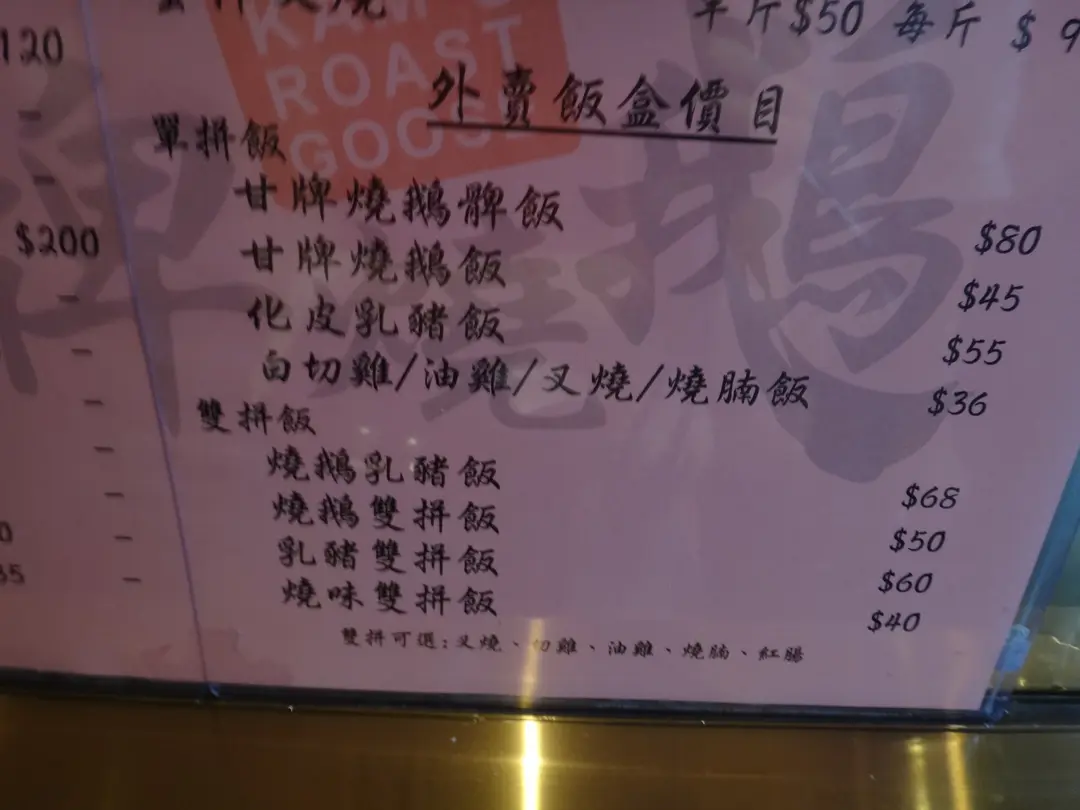 120
半斤$50 每斤 $ 9
ROAST
GOOSE
外賣飯盒價目
單拼飯
甘牌燒鵝髀飯 $80
$200
甘牌燒鵝飯 $45
化皮乳豬飯 $55
白切雞/油雞/叉燒/燒腩飯 $36
雙拼飯
燒鵝乳豬飯 $68
燒鵝雙拼飯 $50
乳豬雙拼飯 $60
燒味雙拼飯 $40
雙拼可選:叉燒、切雞、油雞、燒腩、紅腸
牌燒鵝